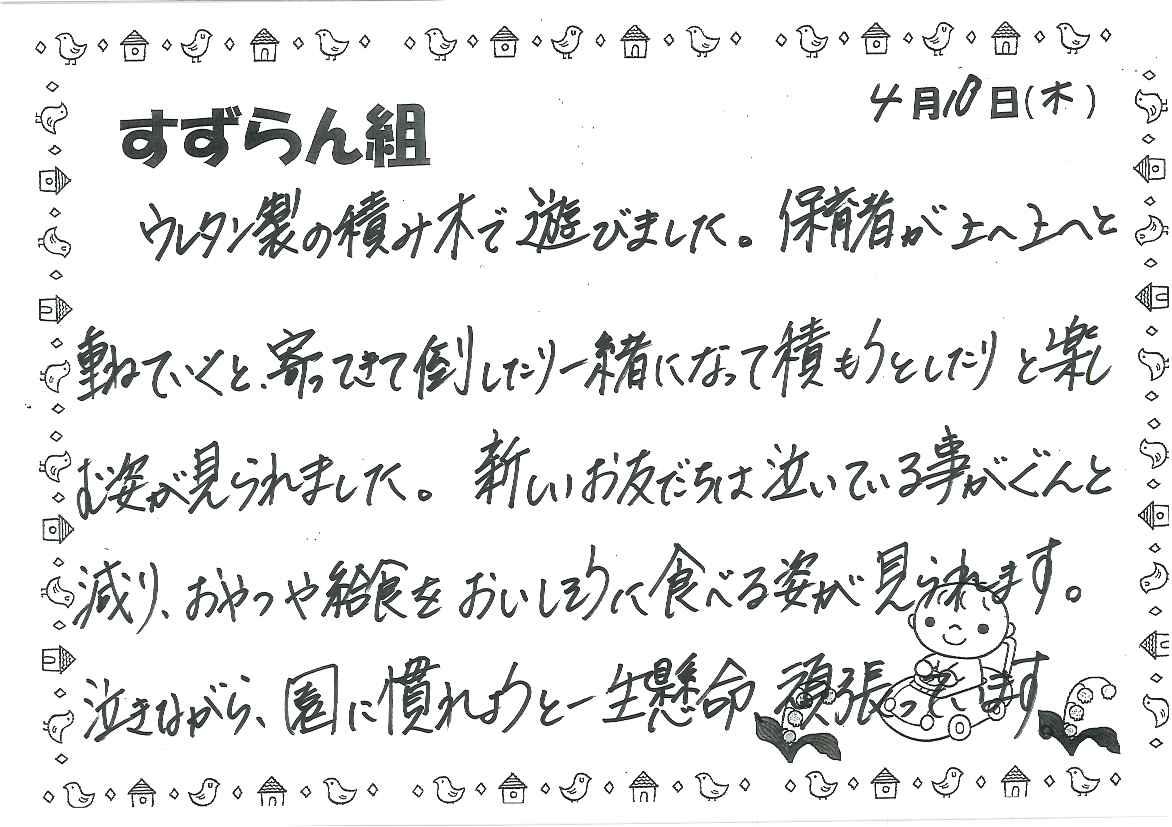 4月10日(木)
すずらん組
ウレタン製の積み木で遊びました。保育者が上へ上へと
重ねていくと、寄ってきて倒したり一緒になって積もうとしたりと楽し
む姿が見られました。新しいお友だちは泣いている事がぐんと
減り、おやつや給食をおいしそうに食べる姿が見られます。
泣きながら、園に慣れようと一生懸命頑張っています